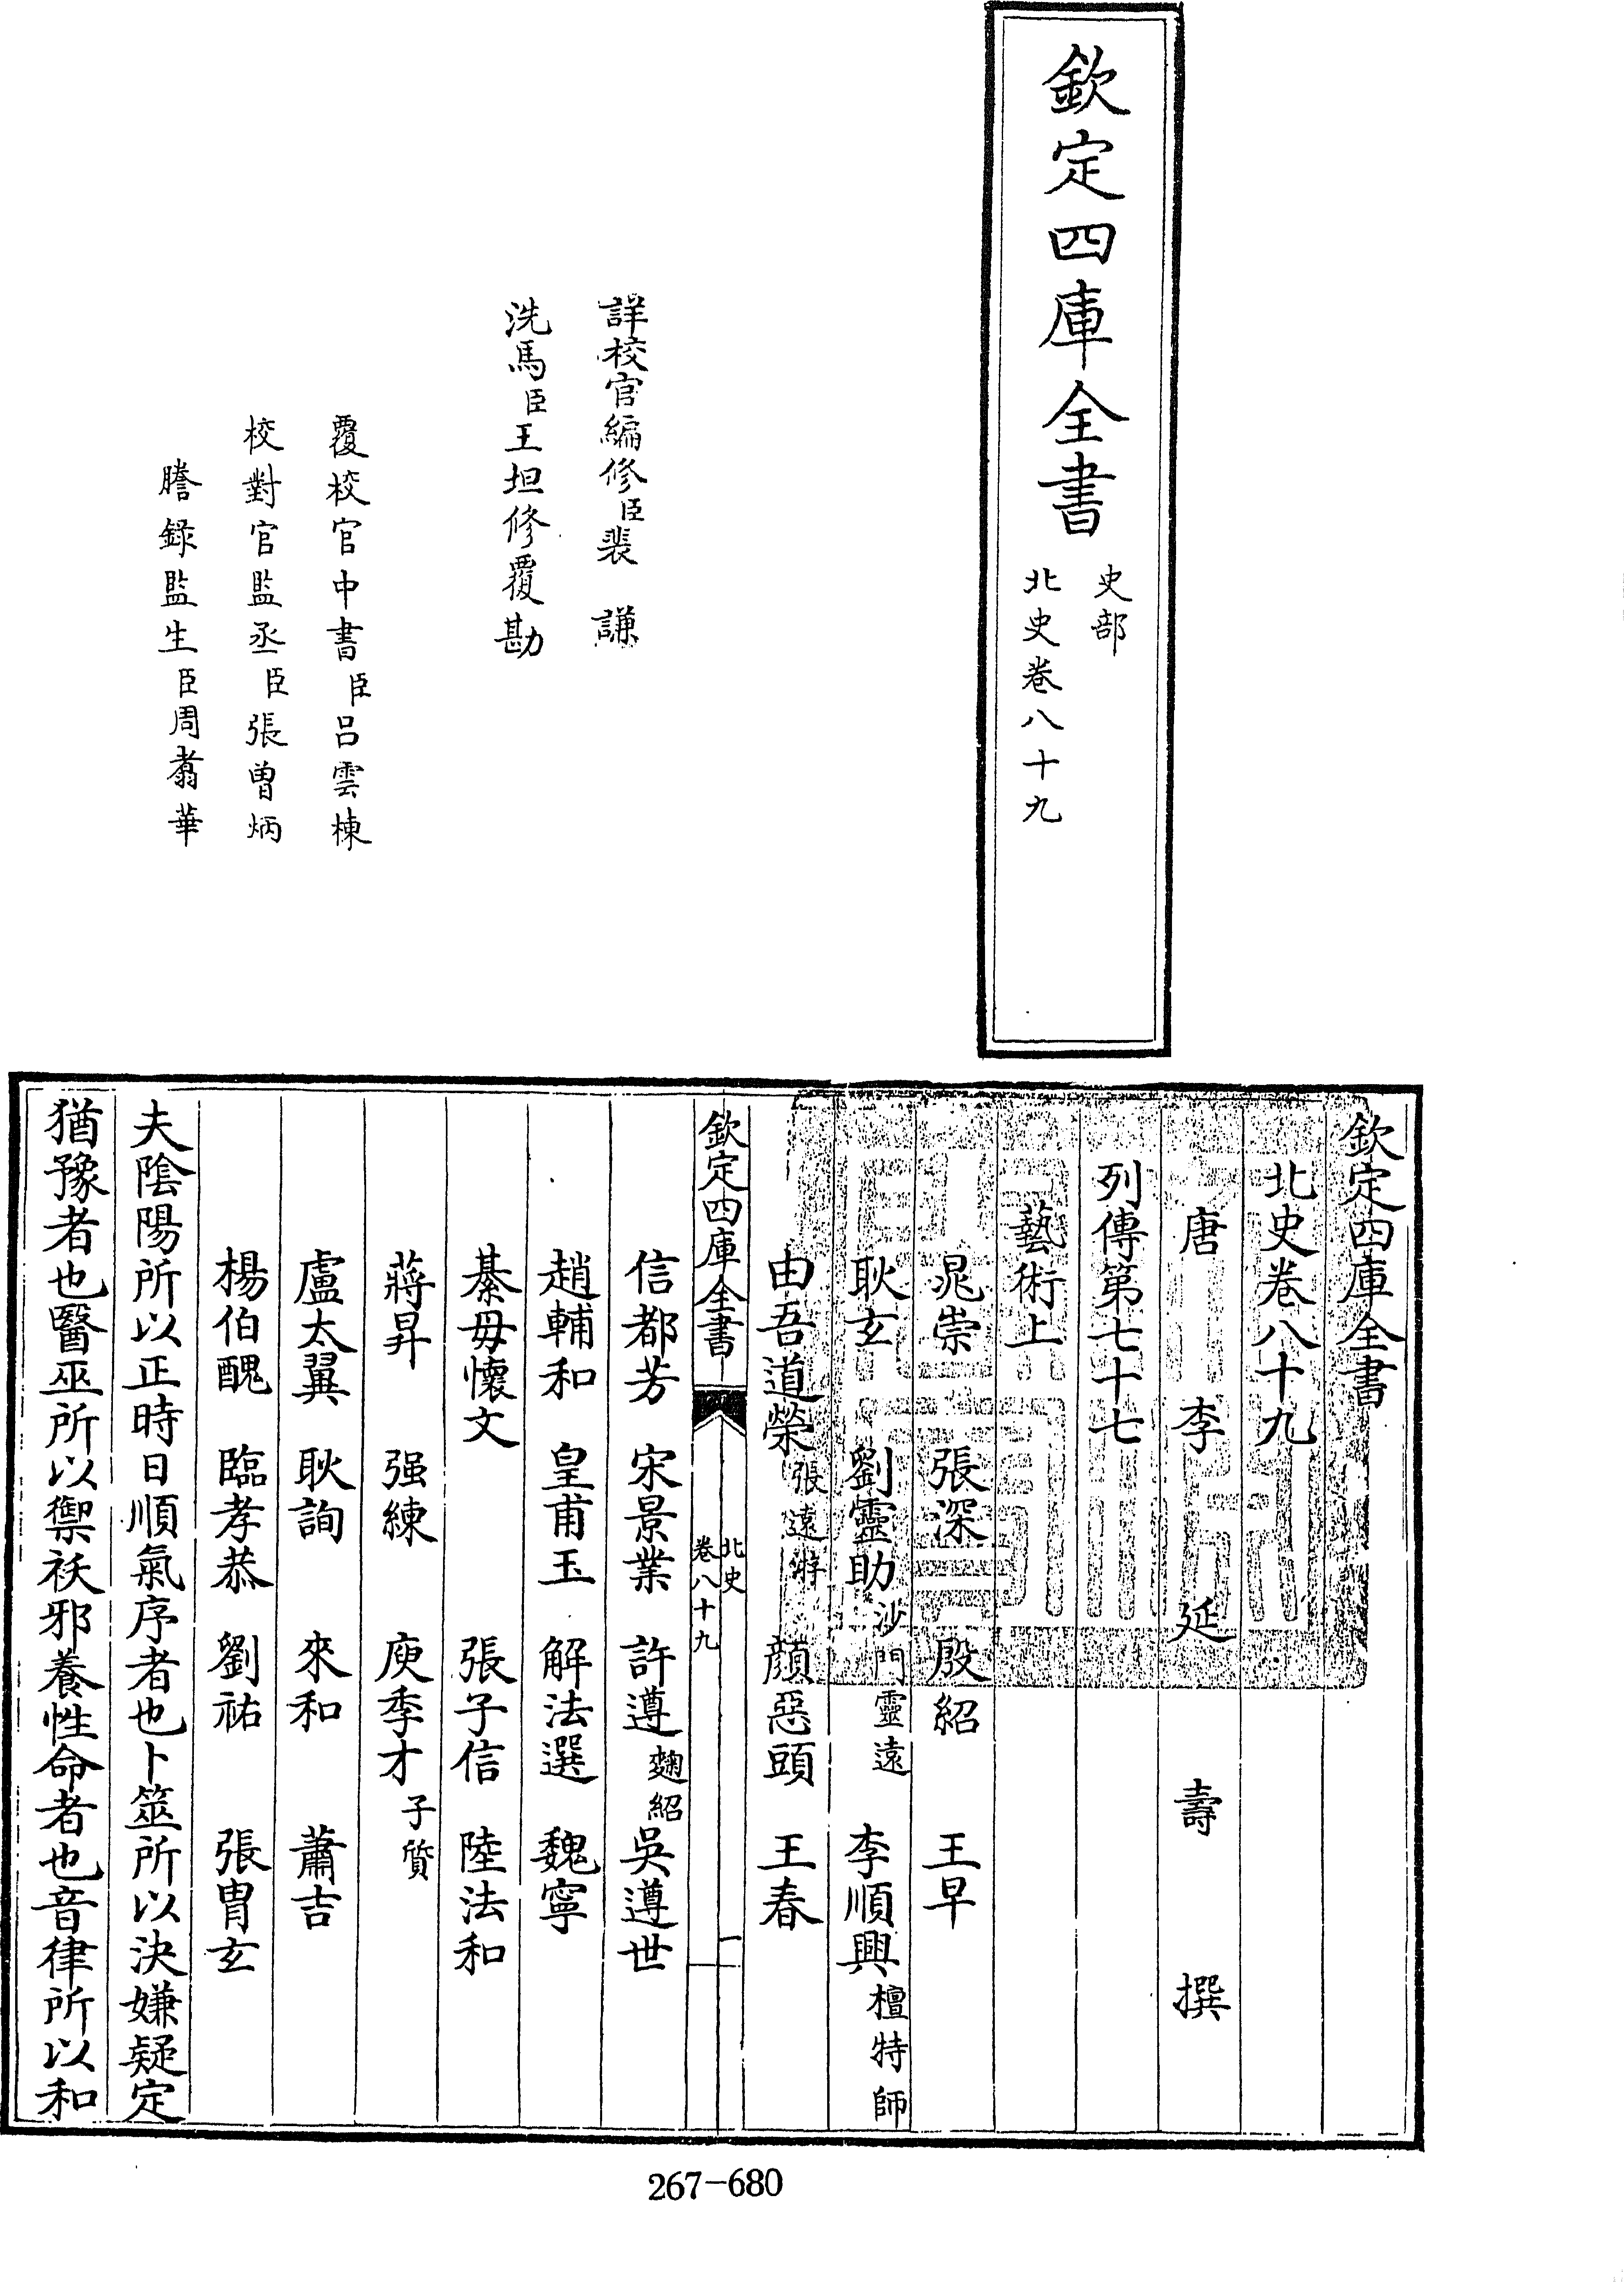 欽定四庫全書
史部
北史卷八十九
詳校官編修臣裴謙
洗馬臣王坦修覆勘
覆校官中書臣呂雲棟
校對官監丞臣張曾炳
謄錄監生臣周翥華
欽定四庫全書
北史卷八十九
唐 李 延 壽 撰
列傳第七十七
藝術上
晁崇 張深 殷紹 王早
耿玄 劉靈助 沙門靈遠 李順興 檀特師
由吾道榮 張遠游 顔惡頭 王春
欽定四庫全書
北史
卷八十九
一
信都芳 宋景業 許遵 麴紹 吳遵世
趙輔和 皇甫玉 解法選 魏寧
綦毋懷文 張子信 陸法和
蔣昇 强練 庾季才 子質
盧太翼 耿詢 來和 蕭吉
楊伯醜 臨孝恭 劉祐 張胄玄
夫陰陽所以正時日順氣序者也卜筮所以決嫌疑定
猶豫者也醫巫所以禦袄邪養性命者也音律所以和
267-680